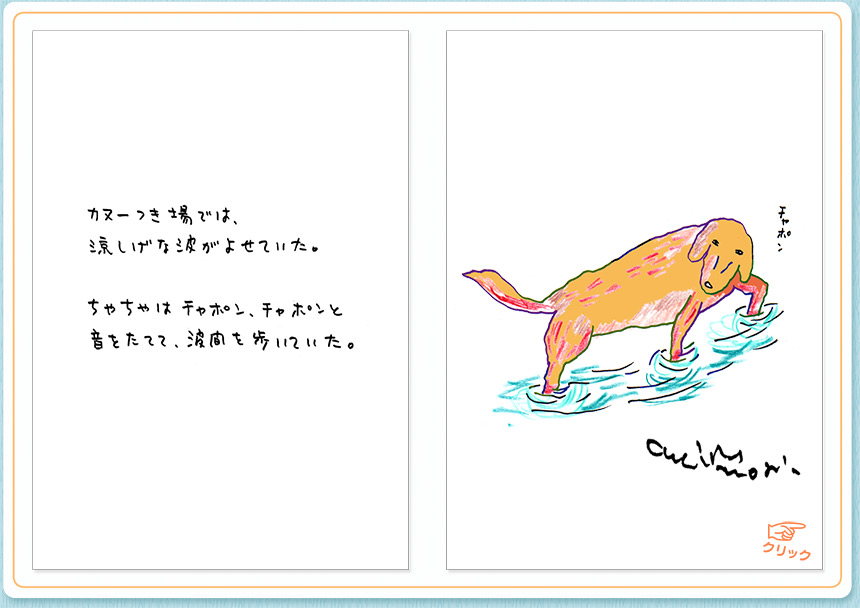 カヌーつき場では、
涼しげな波がよせていた。
ちゃちゃは チャポン、チャポンと
音をたてて、波間を歩いていた。
チャポン
クリック